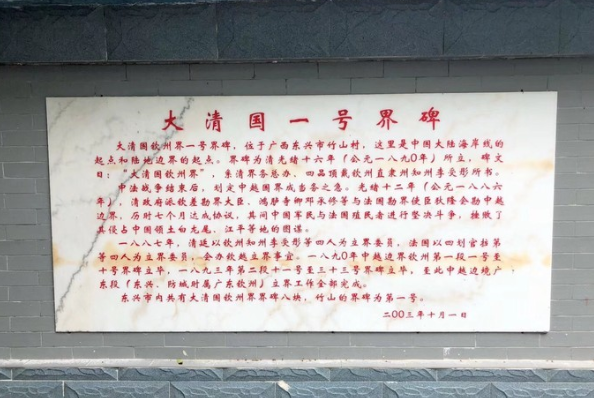 大清国一号界碑
大清国钦州界一号界碑，位于广西东兴市竹山村，这里是中国大陆海岸线的
起点和陆地边界的起点。界碑为清光绪十六年（公元一八九0年）所立，碑文
曰：“大清国钦州界”，系清界务总办、四品顶戴钦州直隶州知州李受彤所书。
中法战争结束后，划定中越国界成当务之急。光绪十二年（公元一八八六
年）清政府派钦差勘界大臣、鸿胪寺卿邓承修等与法国勘界使臣狄隆会勘中越
边界，历时七个月达成协议，其间中国军民与法国殖民者进行坚决斗争，挫败了
其侵占中国领土白龙尾、江平等地的图谋。
一八八七年，清廷以钦州知州李受彤等四人为立界委员，法国以四划官拉第
等四人为立界委员，会办钦越立界事宜。一八九0年中越边界钦州第一段一号至
十号界碑立毕，一八九三年第二段十一号至三十三号界碑立毕，至此中越边境广
东段（东兴、防城时属广东钦州）立界工作全部完成。
东兴市内共有大清国钦州界界碑八块，竹山的界碑为第一号。
二00三年十月一日